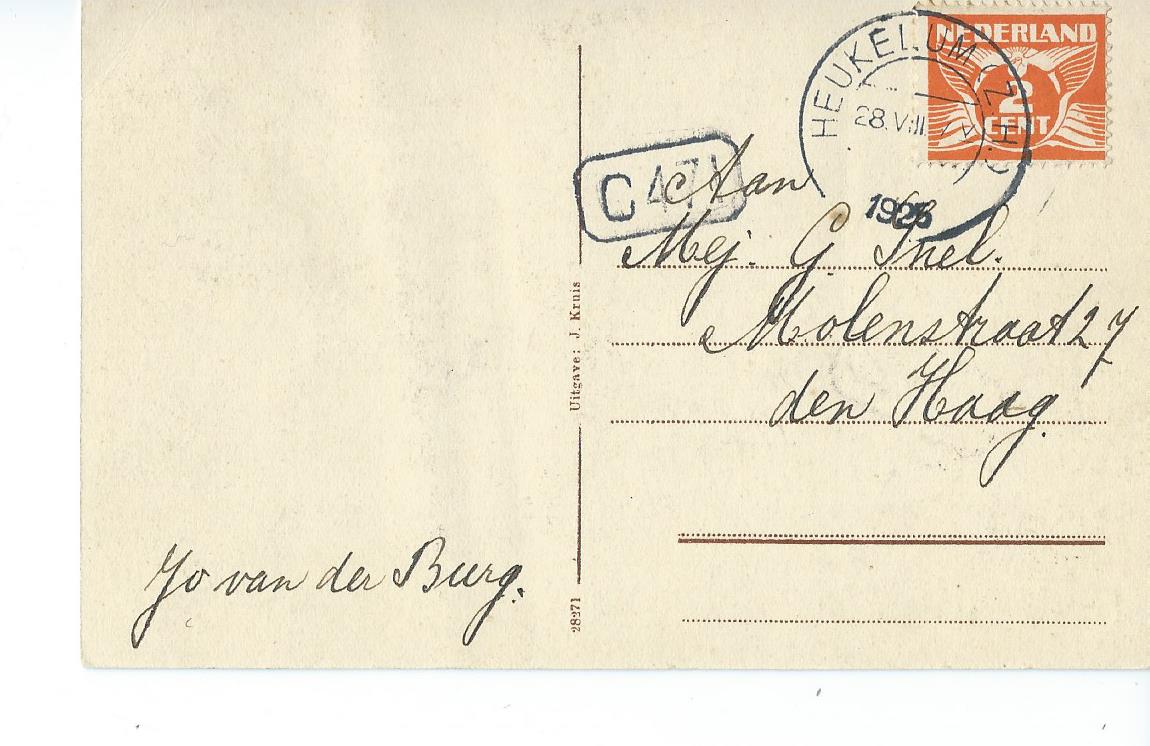 NEDERLAND
2
CENT
HEUKELUM (Z.H.)
28.VIII
1925
C 471
Aan
Mej. G. Snel.
Molenstraat 27
den Haag.
Uitgave: J. Kruis
28271
Jo van der Burg.